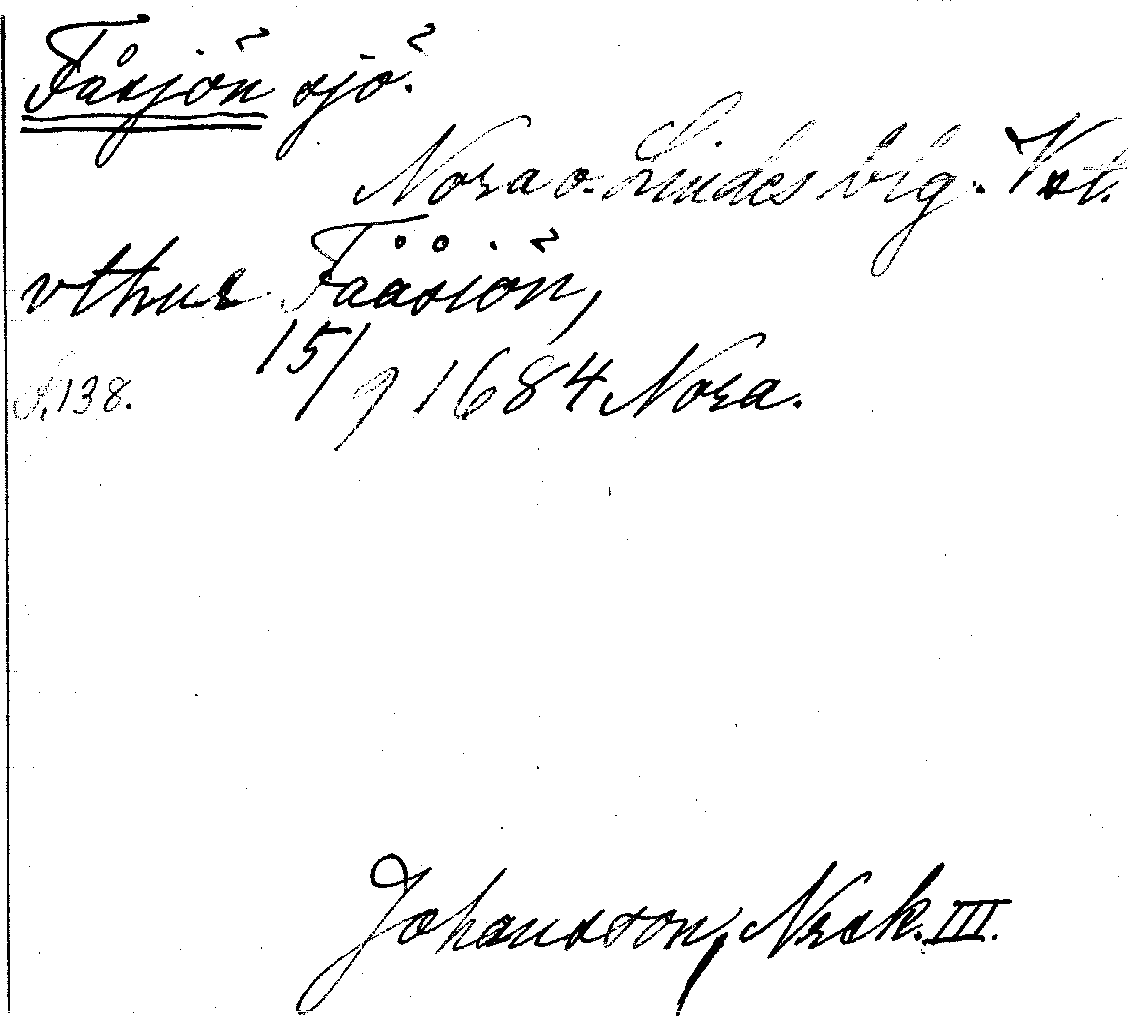 Fåsjön sjö.
Nora o. Lindes blg. Vstl.
vthur Fååsiön,
15/9 1684 Nora.
s. 138.
Johansson, Nrck. III.